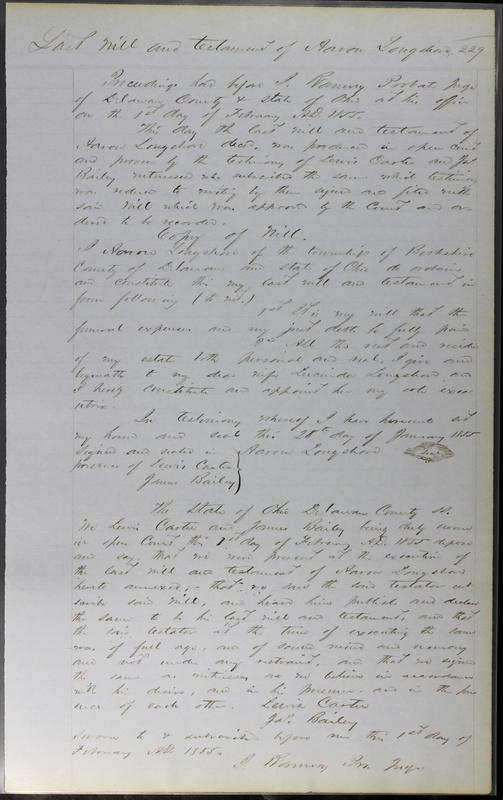 Last Will and testament of Aaron Longshore. 229
Proceedings had before I. Ranney Probate Judge
of Delaware County & State of Ohio at his office
on the 1st day of February A.D. 1855.
This day the last will and testament of
Aaron Longshore decd. was produced in open Court
and proven by the testimony of Lewis Carter and Jas.
Bailey witnesses who subscribed the same which testimony
was reduced to writing by them signed and filed with
said Will which was approved by the Court and or-
dered to be recorded.
Copy of Will.
I Aaron Longshore of the township of Berkshire
County of Delaware and State of Ohio do ordain
and constitute this my last will and testament in
form following (to wit.)
1st It is my will that the
funeral expenses and my just debts be fully paid
2nd All the rest and residue
of my estate both personal and real, I give and
bequeath to my dear wife Lucinda Longshore and
I hereby constitute and appoint her my sole execu
utrix.
In testimony whereof I have hereunto set
my hand and seal this 28th day of January 1855
Signed and sealed in } Aaron Longshore Seal
presence of Lewis Carter
James Bailey
The State of Ohio Delaware County Ss.
We Lewis Carter and James Bailey being duly sworn
in open Court this 1st day of February A.D. 1855 depose
and say, that we were present at the execution of
the last will and testament of Aaron Longshore
hereto annexed; - that we saw the said testator sub
scribe said Will, and heard him publish and declare
the same to be his last will and testament, and that
the said testator at the time of executing the same
was of full age, and of sound mind and memory
and not under any restraint, and that we signed
the same as witnesses, as we believe in accordance
with his desire, and in his presence, and in the pre
sence of each other. Lewis Carter
Jas. Bailey
Sworn to & subscribed before me this 1st day of
February A.D. 1855.
I Ranney Pro. Judge